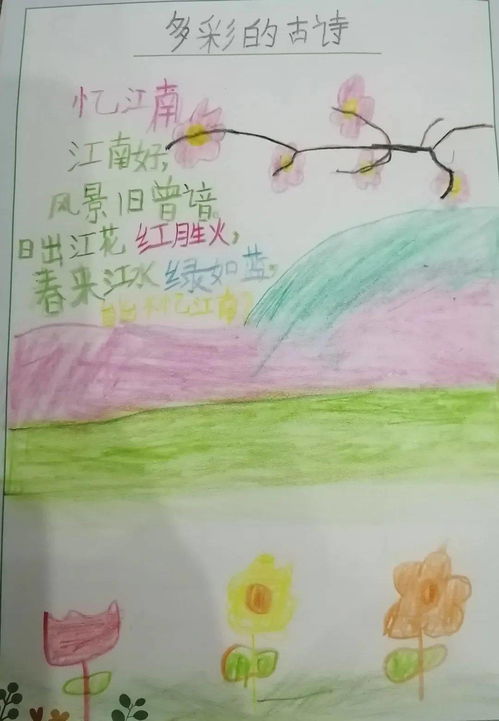 多彩的古诗
忆江南
江南好,
风景旧曾谙。
日出江花红胜火,
春来江水绿如蓝,
不忆江南?